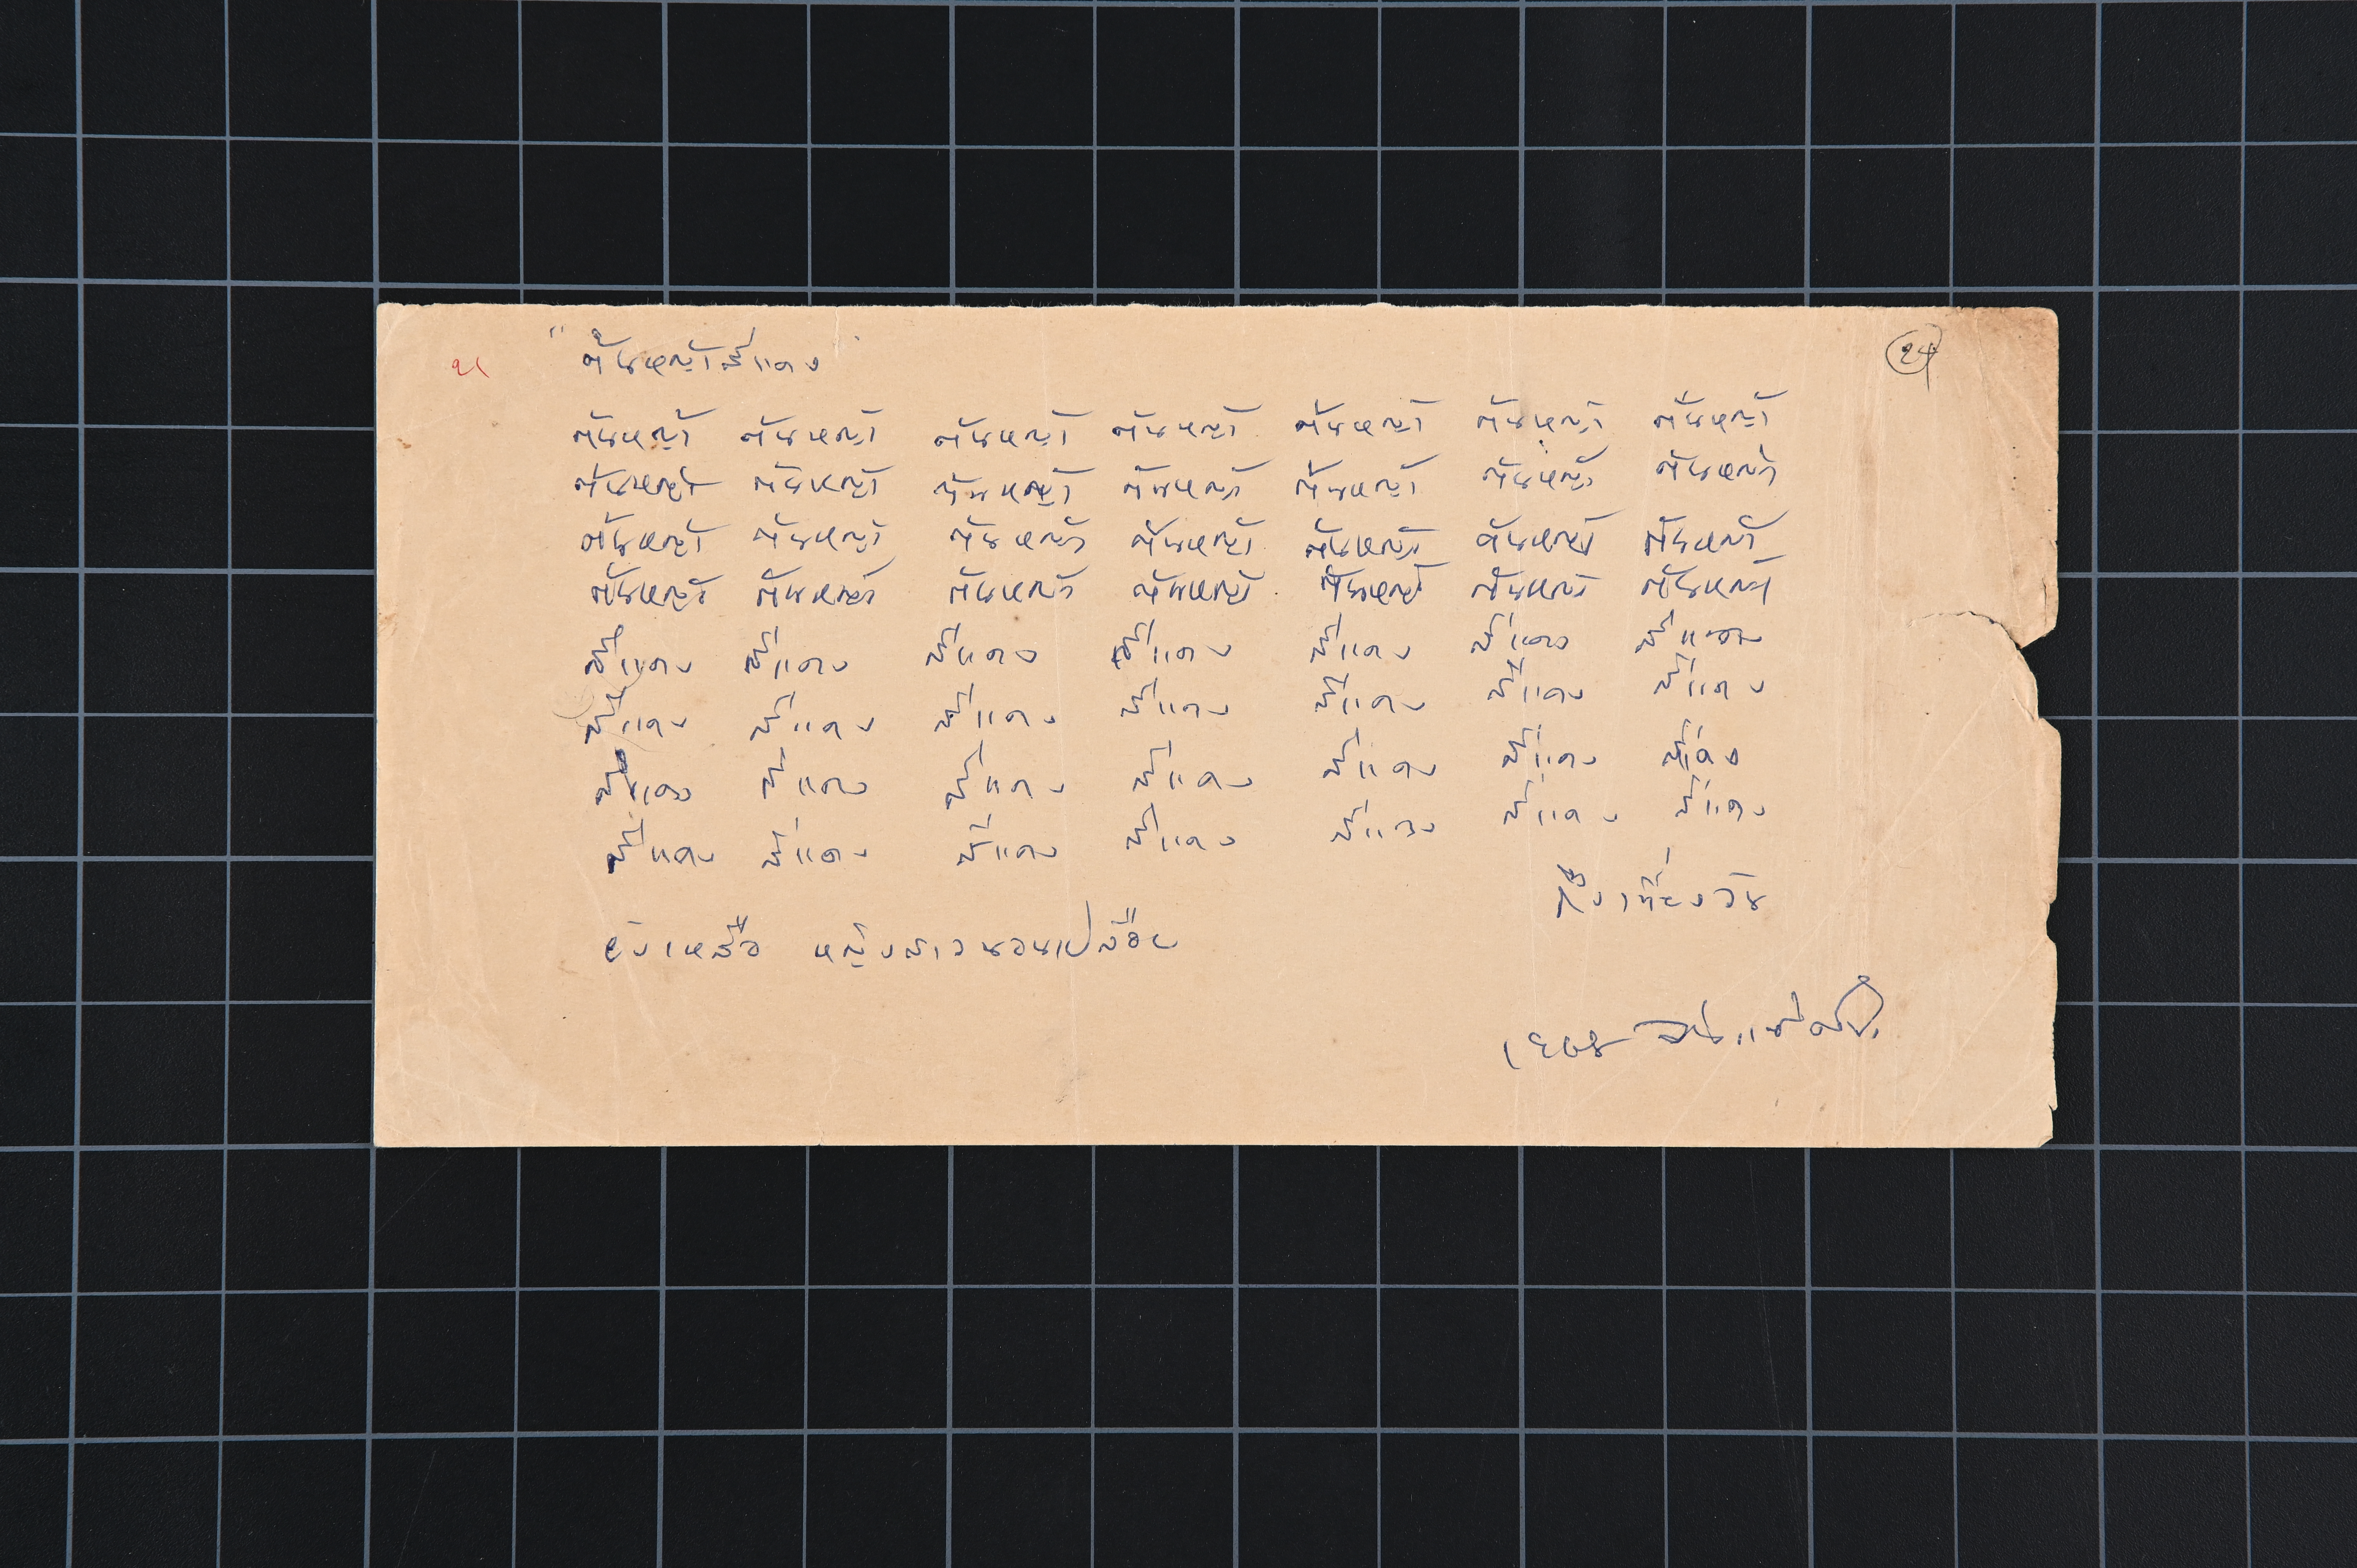 "ต้นหญ้าสีแดง"
ต้นหญ้า ต้นหญ้า ต้นหญ้า ต้นหญ้า ต้นหญ้า ต้นหญ้า ต้นหญ้า
ต้นหญ้า ต้นหญ้า ต้นหญ้า ต้นหญ้า ต้นหญ้า ต้นหญ้า ต้นหญ้า
ต้นหญ้า ต้นหญ้า ต้นหญ้า ต้นหญ้า ต้นหญ้า ต้นหญ้า ต้นหญ้า
ต้นหญ้า ต้นหญ้า ต้นหญ้า ต้นหญ้า ต้นหญ้า ต้นหญ้า ต้นหญ้า
สีแดง สีแดง สีแดง สีแดง สีแดง สีแดง สีแดง
สีแดง สีแดง สีแดง สีแดง สีแดง สีแดง สีแดง
สีแดง สีแดง สีแดง สีแดง สีแดง สีแดง สีแดง
สีแดง สีแดง สีแดง สีแดง สีแดง สีแดง สีแดง
ถึงเที่ยงวัน
ยังเหลือ หญิงสาวนอนเปลือย